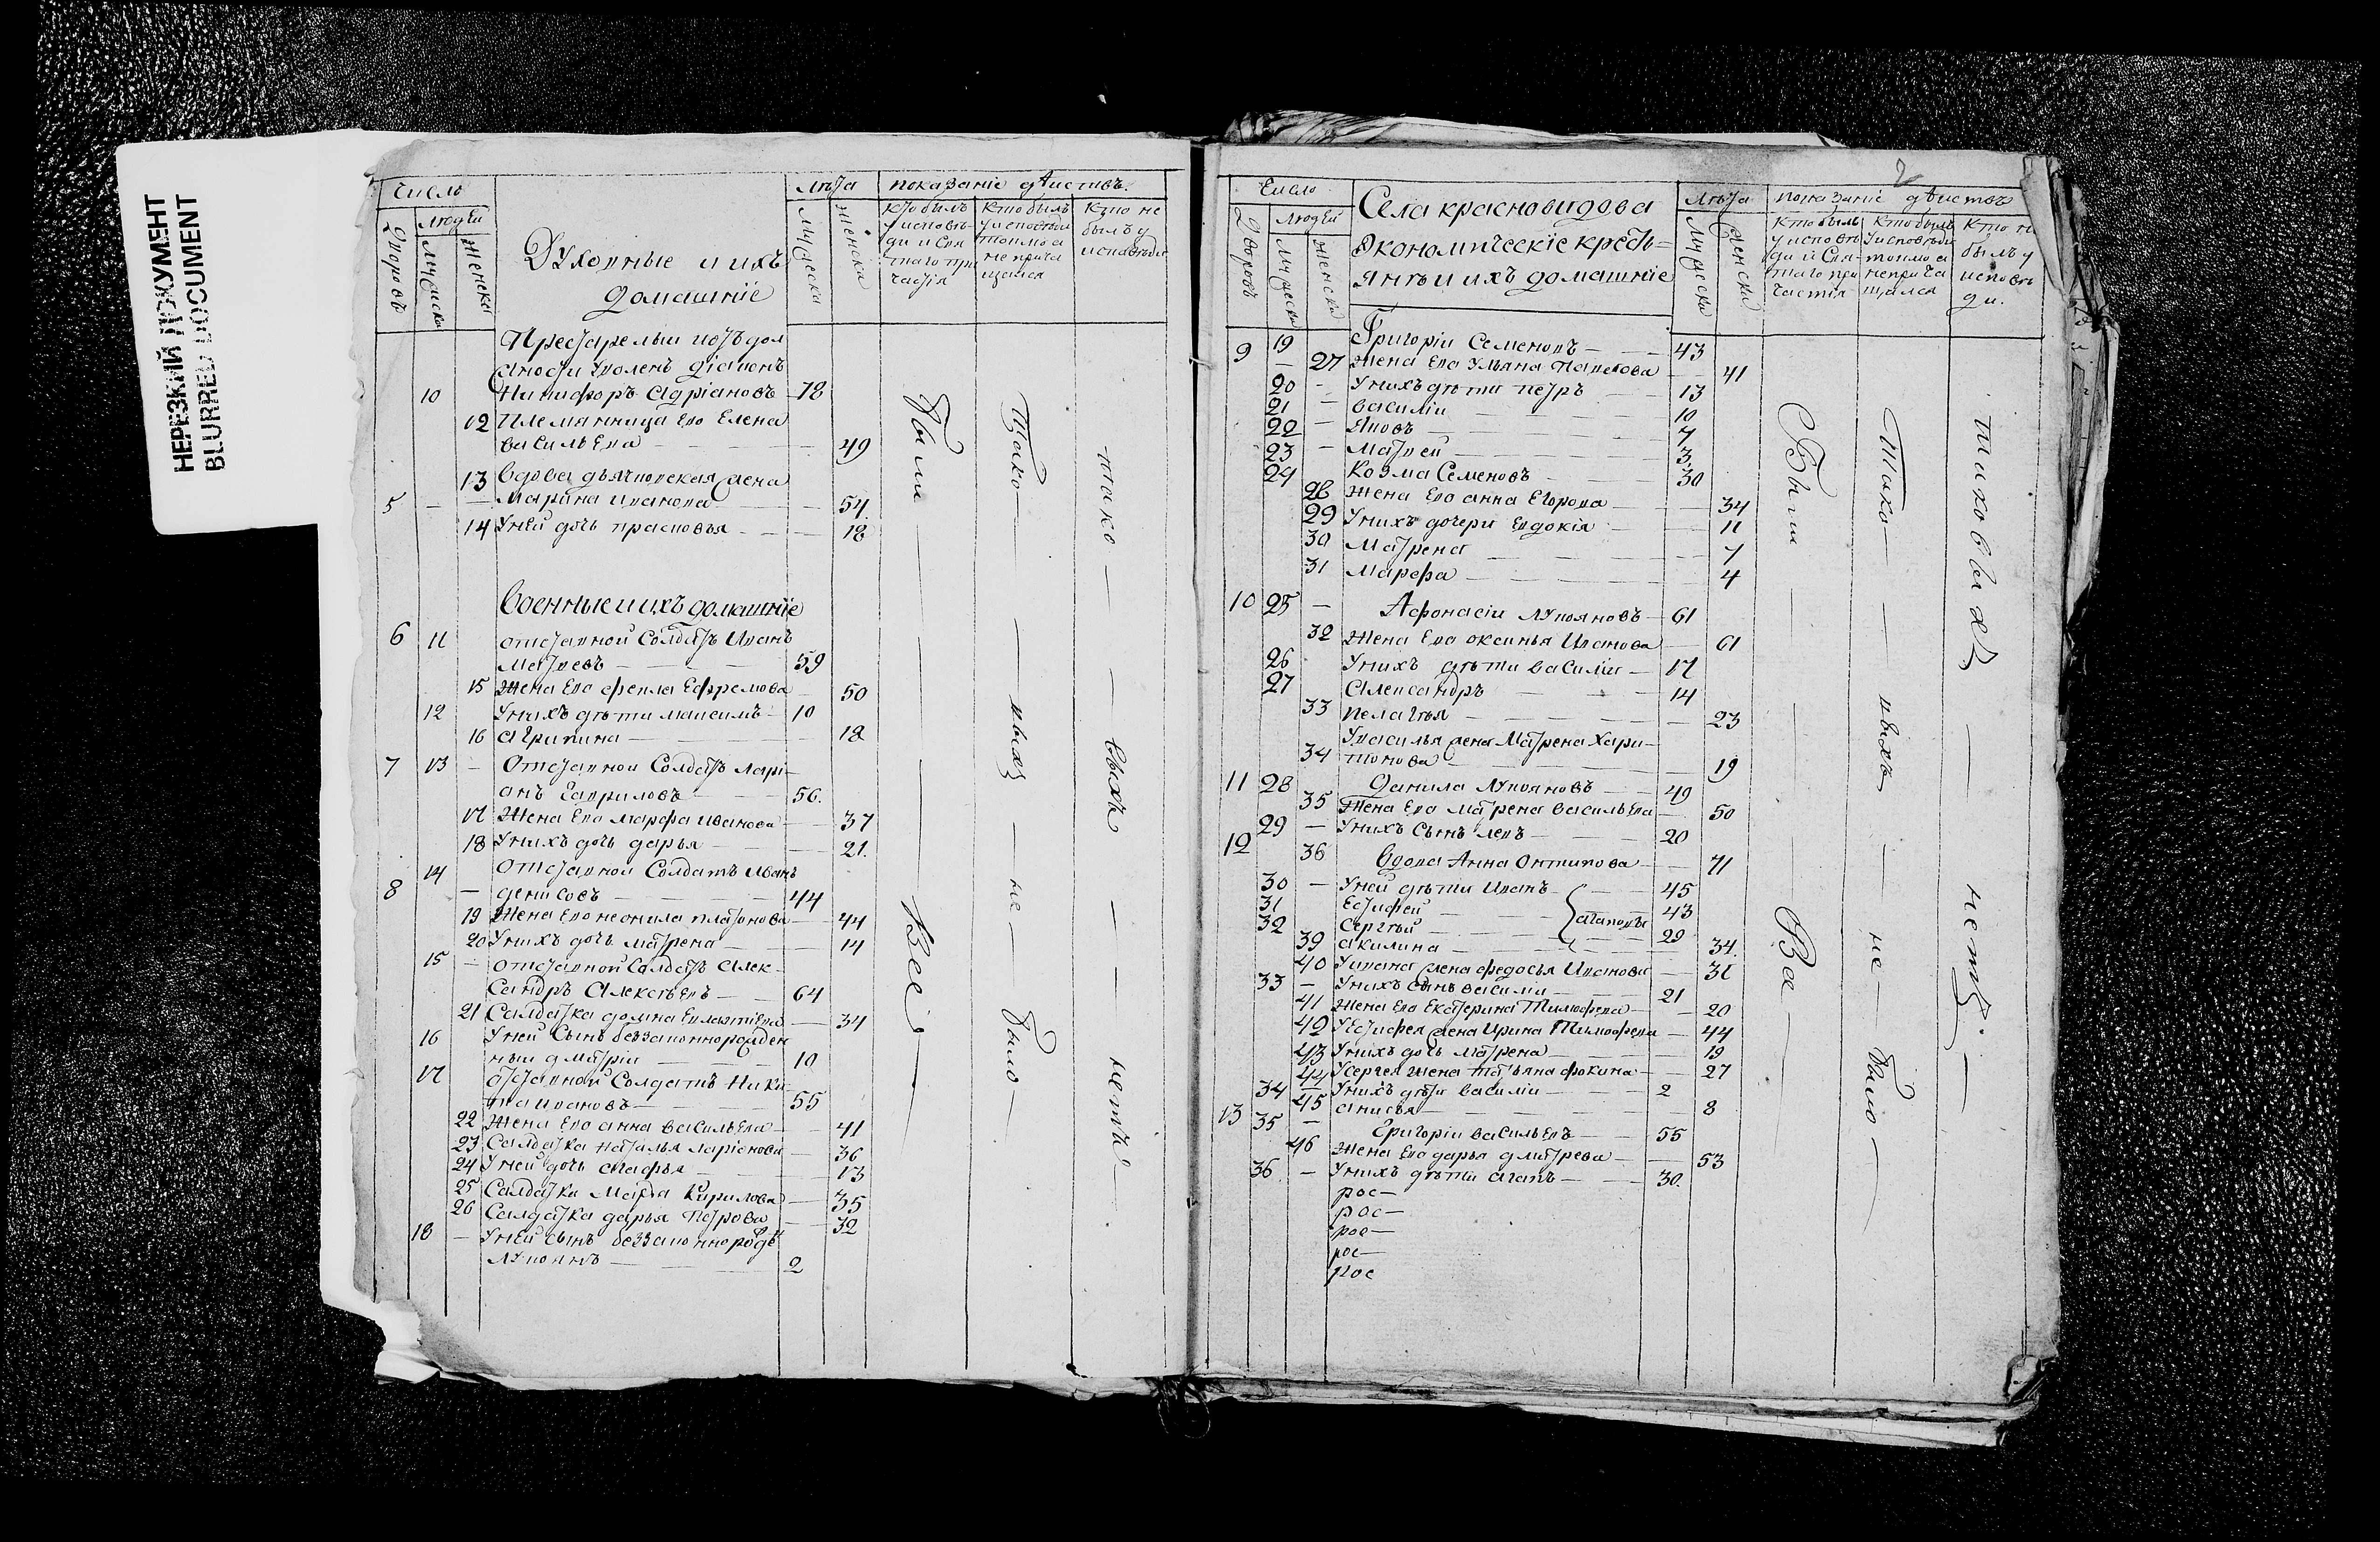 НЕРЕЗКИЙ ДОКУМЕНТ
BLURRED DOCUMENT
Число
Людей
Дворовъ
Мужеска
Женска
Духовные и ихъ
домашнїе
Лѣта
Мужеска
Женска
показанїе дѣиствъ.
Кто былъ у исповѣди и Свя таго при частїя
Кто былъ у исповѣди токмо а не прича щался
Кто не былъ у исповѣди
Престарелыи и отъ дол
жности уволенъ дїаконъ
10 Никифоръ Адрїановъ — 78
12 Племянница Ево Елена
васильева — 49
13 Вдова дьячковская жена
5 — — Марина иванова — 54.
14 Унеи дочь прасковья — 18
Военные и ихъ домашнїе
6 11 отставной Солдатъ Иванъ
Матвевъ — 59
15 Жена Ево фекла Ефремова — 50
12 Унихъ дѣти максимъ — 10
16 агрипина — 18
7 13 — Отставнои Солдатъ лари
анъ Гавриловъ — 56.
17 Жена Ево марфа иванова — 37
18 Унихъ дочь дарья — 21.
14 Отставнои Солдатъ Иванъ
8 — денисовъ — 44
19 Жена Ево неонила платонова — 44
20 Унихъ дочь матрена — 14
15 — отставной Солдатъ Алек
Сандръ Алексѣевъ — 64
21 Салдатка домна Евлантиева — 34
16 Унеи Сынъ беззаконнорожден
ныи дмитрїи — 10
17 отставной Солдатъ Ники
та ивановъ — 55
22 Жена Ево анна васильева — 41
23 Салдатка наталья ларїонова — 36
24 Унеи дочь агафья — 13
25 Салдатка Марья Кирилова — 35
26 Салдатка дарья Петрова — 32
18 — Унеи сынъ беззаконнорожде
Лукоянъ — 2
Были — Все —
Тако — выхъ — не — было —
тако — выхъ — нетъ —
2
Число
Людей
Дворовъ
Мужеска
Женска
Села красновидова
Экономическїе кресть=
янѣ и ихъ домашнїе
Лѣта
Мужеска
Женска
показанїе дѣиствъ
Кто былъ у исповѣ ди и Свя таго при частїя
Кто былъ у исповѣди токмо а не прича щался
Кто не былъ у исповѣ ди.
9 19 Григорїи Семеновъ — 43
— 27 Жена Ево Ульяна Панфтова — 41
20 — Унихъ дѣти петръ — 13
21 — василїи — 10
22 — Яковъ — 7
23 — Матвеи — 3
24 Козма Семеновъ — 30
28 Жена Ево анна Егорова — 34
29 Унихъ дочери Евдокїя — 11
30 Матрена — 7
31 Марефа — 4
10 25 — Афонасїи Лукояновъ — 61
32 Жена Ево оксинья Иванова — 61
26 Унихъ дѣти василїи — 17
27 Александръ — 14
33 пелагѣя — 23
Увасилья жена Матрена Хари
34 тонова — 19
11 28 Данила Лукояновъ — 49
35 Жена Ево матрена васильева — 50
29 — Унихъ Сынъ левъ — 20
12 36 Вдова Анна Онтипова — 71
30 — Унеи дѣти Иванъ — 45
31 Естифей — агаповы 43
32 Сергѣй — 29
39 акилина — 34.
40 Уивана жена федосья Иванова — 31
33 — Унихъ Сынъ василїи — 21
41 Жена Ево Екатерина Тимофева — 20
42 Уестифея жена Ирина Тимофева — 44
43 Унихъ дочь матрена — 19
44 Усергея жена татьяна фокина — 27
34 — Унихъ дѣти василїи — 2
45 анисья — 8
13 35 — Григорїи васильевъ — 55
46 Жена Ево дарья дмитрева — 53
36. — Унихъ дѣти агапъ — 30.
рос—
рос—
рос—
рос—
рос
Были — Все —
Тако — выхъ — не было —
таковыхъ — нетъ —